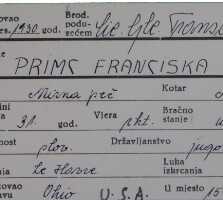 ovao
es. 1930. god. Brod. podu- zećem
PRIMC FRANCISKA
Mirna peč Kotar
ini
31. god. Vjera rkt. Bračno stanje u
ost slov. Državljanstvo jugo
ja Le Havre Luka iskrcanja
ovao Ohio U.S.A. U mjesto 15